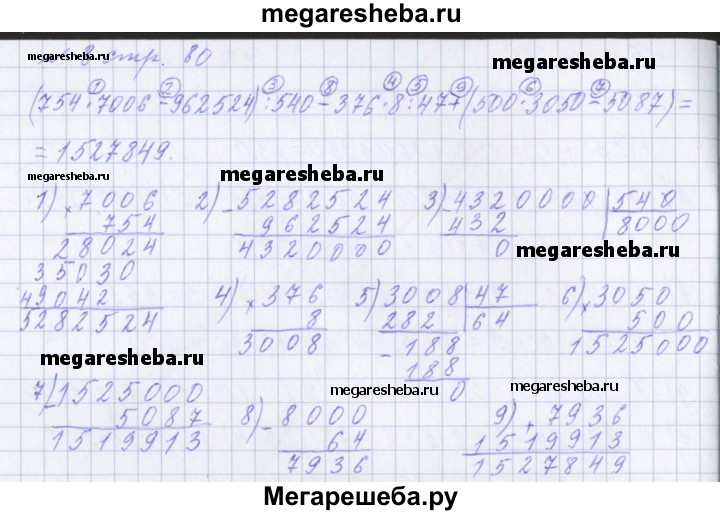 megaresheba.ru
megaresheba.ru
стр. 80
megaresheba.ru
① ② ③ ⑧ ④ ⑤ ⑨ ⑥ ⑦
(754·7006-962524):540-376·8:47+(500·3050-5087)=
=1527849.
1) × 7006
754
28024
35030
49042
5282524
2) - 5282524
962524
4320000
3) - 4320000 | 540
432 | 8000
0
megaresheba.ru
4) × 376
8
3008
5) - 3008 | 47
282 | 64
- 188
188
0
6) × 3050
500
1525000
megaresheba.ru
7) - 1525000
5087
1519913
megaresheba.ru
8) - 8000
64
7936
megaresheba.ru
9) + 7936
1519913
1527849
Мегарешеба.ру